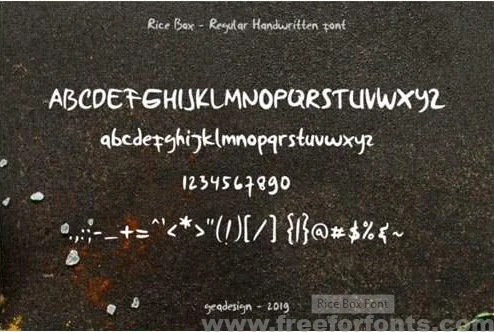 Rice Box - Regular Handwritten font
ABCDEFGHIJKLMNOPQRSTUVWXYZ
abcdefghijklmnopqrstuvwxyz
1234567890
.,:;-_+=^`'<*>"(!)[/]{|}@#$%&~
geadesign - 2019
Rice Box Font
www.freeforfonts.com